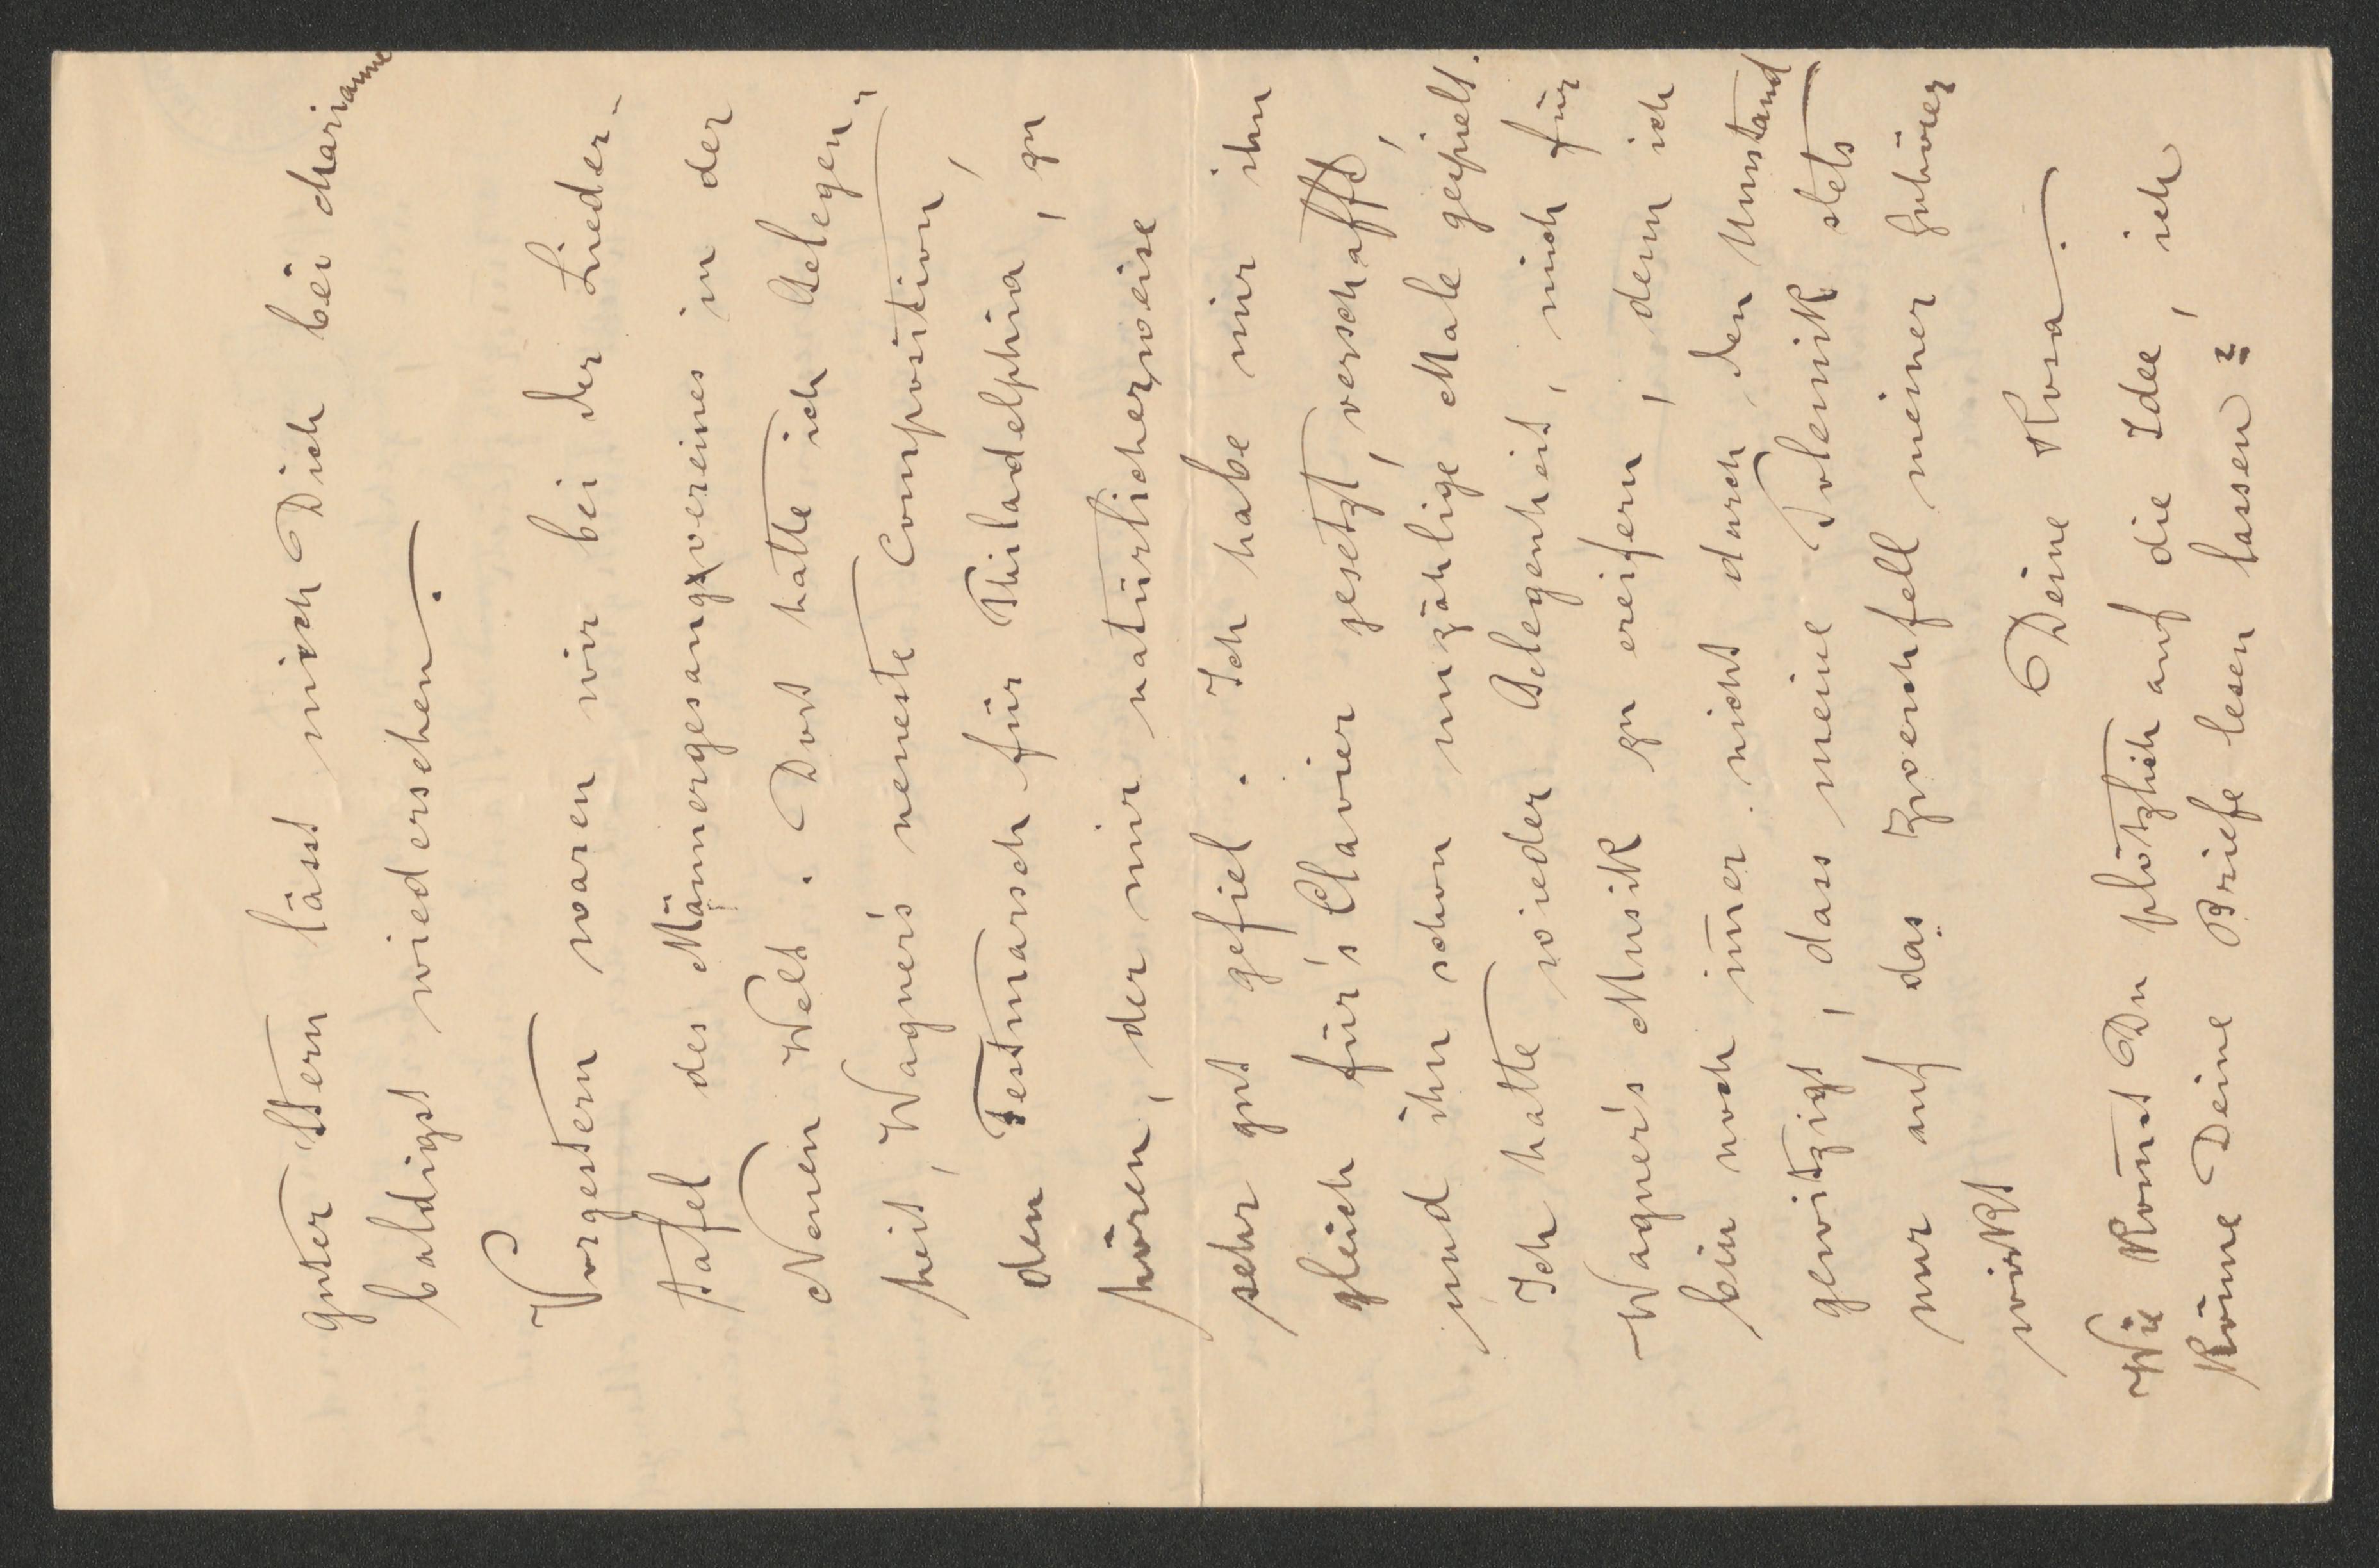 guter Stern lässt mich Dich bei Marianne
baldigst wiedersehen.
Vorgestern waren wir bei der Lieder-
tafel des Männergesangvereines in der
Neuen Welt. Dort hatte ich Gelegen-
heit, Wagner's neueste Composition,
den Festmarsch für Philadelphia, zu
hören, der mir natürlicherweise
sehr gut gefiel. Ich habe mir ihn
gleich für's Clavier gesetzt, verschafft,
und ihn schon unzählige Male gespielt.
Ich hatte wieder Gelegenheit, mich für
Wagner's Musik zu ereifern, denn ich
bin noch im̄er nicht durch den Umstand
gewitzigt, dass meine Polemik stets
nur auf das Zwerchfell meiner Zuhörer
wirkt
Deine Rosa.
Wie kom̄st Du plötzlich auf die Idee, ich
könne Deine Briefe lesen lassen?